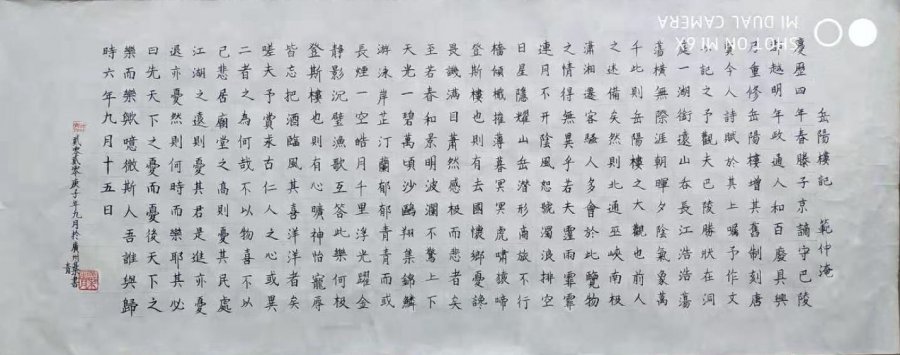 岳陽樓記 範仲淹
慶歷四年春滕子京謫守巴陵
郡越明年政通人和百廢具興
乃重修岳陽樓增其舊制刻唐
賢今人詩賦於其上囑予作文
以記之予觀夫巴陵勝狀在洞
庭一湖銜遠山吞長江浩浩蕩
蕩橫無際涯朝暉夕陰氣象萬
千此則岳陽樓之大觀也前人
之述備矣然則北通巫峽南極
瀟湘遷客騷人多會於此覽物
之情得無異乎若夫霪雨霏霏
連月不開陰風怒號濁浪排空
日星隱耀山岳潛形商旅不行
檣傾楫摧薄暮冥冥虎嘯猿啼
登斯樓也則有去國懷鄉憂讒
畏譏滿目蕭然感極而悲者矣
至若春和景明波瀾不驚上下
天光一碧萬頃沙鷗翔集錦鱗
游泳岸芷汀蘭郁郁青青而或
長煙一空皓月千里浮光躍金
靜影沉璧漁歌互答此樂何極
登斯樓也則有心曠神怡寵辱
皆忘把酒臨風其喜洋洋者矣
嗟夫予嘗求古仁人之心或異
二者之為何哉不以物喜不以
己悲居廟堂之高則憂其民處
江湖之遠則憂其君是進亦憂
退亦憂然則何時而樂耶其必
曰先天下之憂而憂後天下之
樂而樂歟噫微斯人吾誰與歸
時六年九月十五日
貳零貳零庚子年九月於廣州
SHOT ON MI 6X
MI DUAL CAMERA